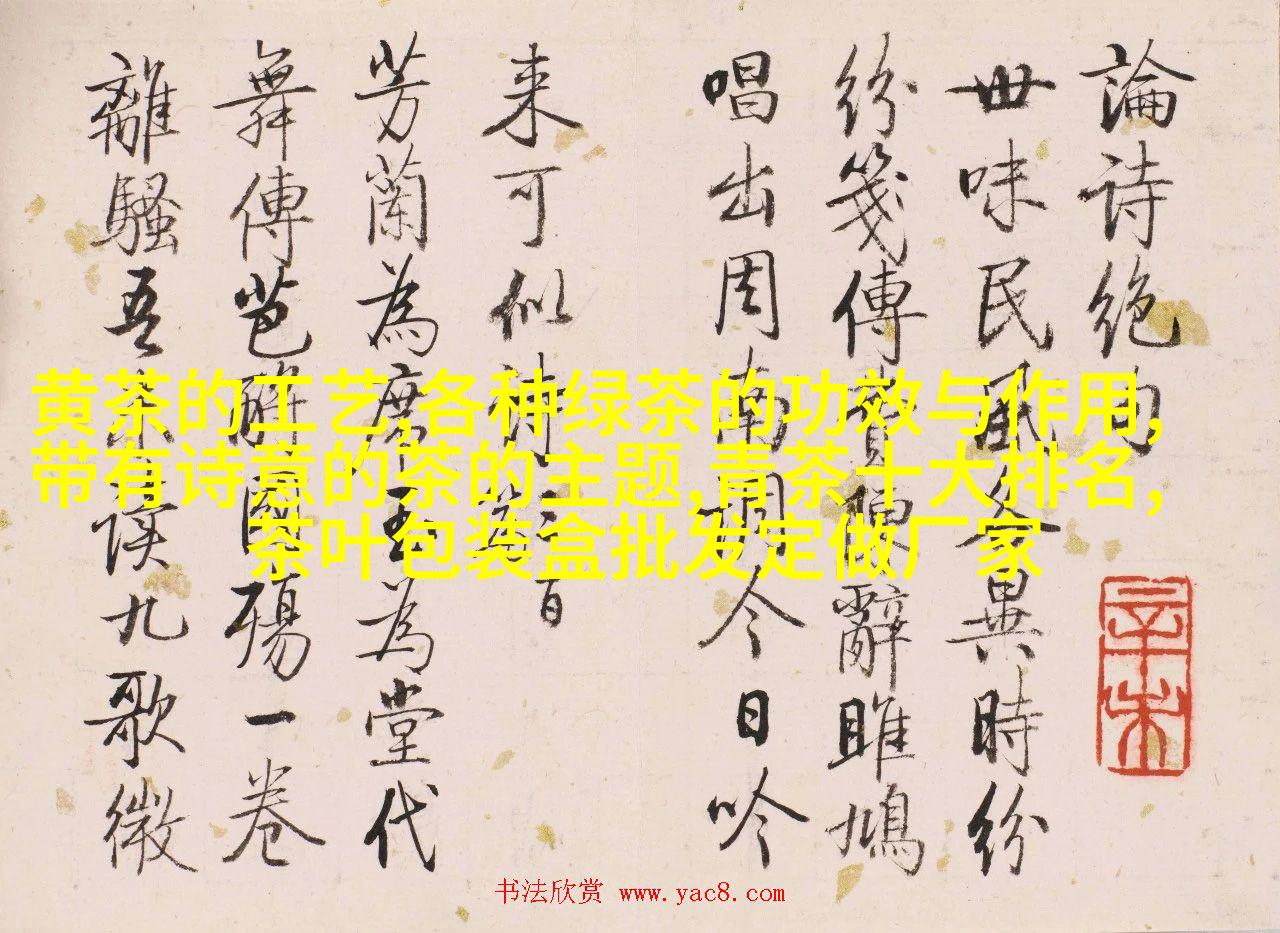 論诗絶句
世味民風各異時紛
紛箋傳陳辭雎鳩
唱出周南今日吟
来可似詩三百
芳蘭為席玉為堂代
舞傳芭酹國殤一卷
離騷吾未讀九歌微
黄茶的工艺,各种绿茶的功效与作用,
带有诗意的茶的主题,青茶十大排名,
茶叶包装盒批发定做厂家
书法欣赏 www.yac8.com